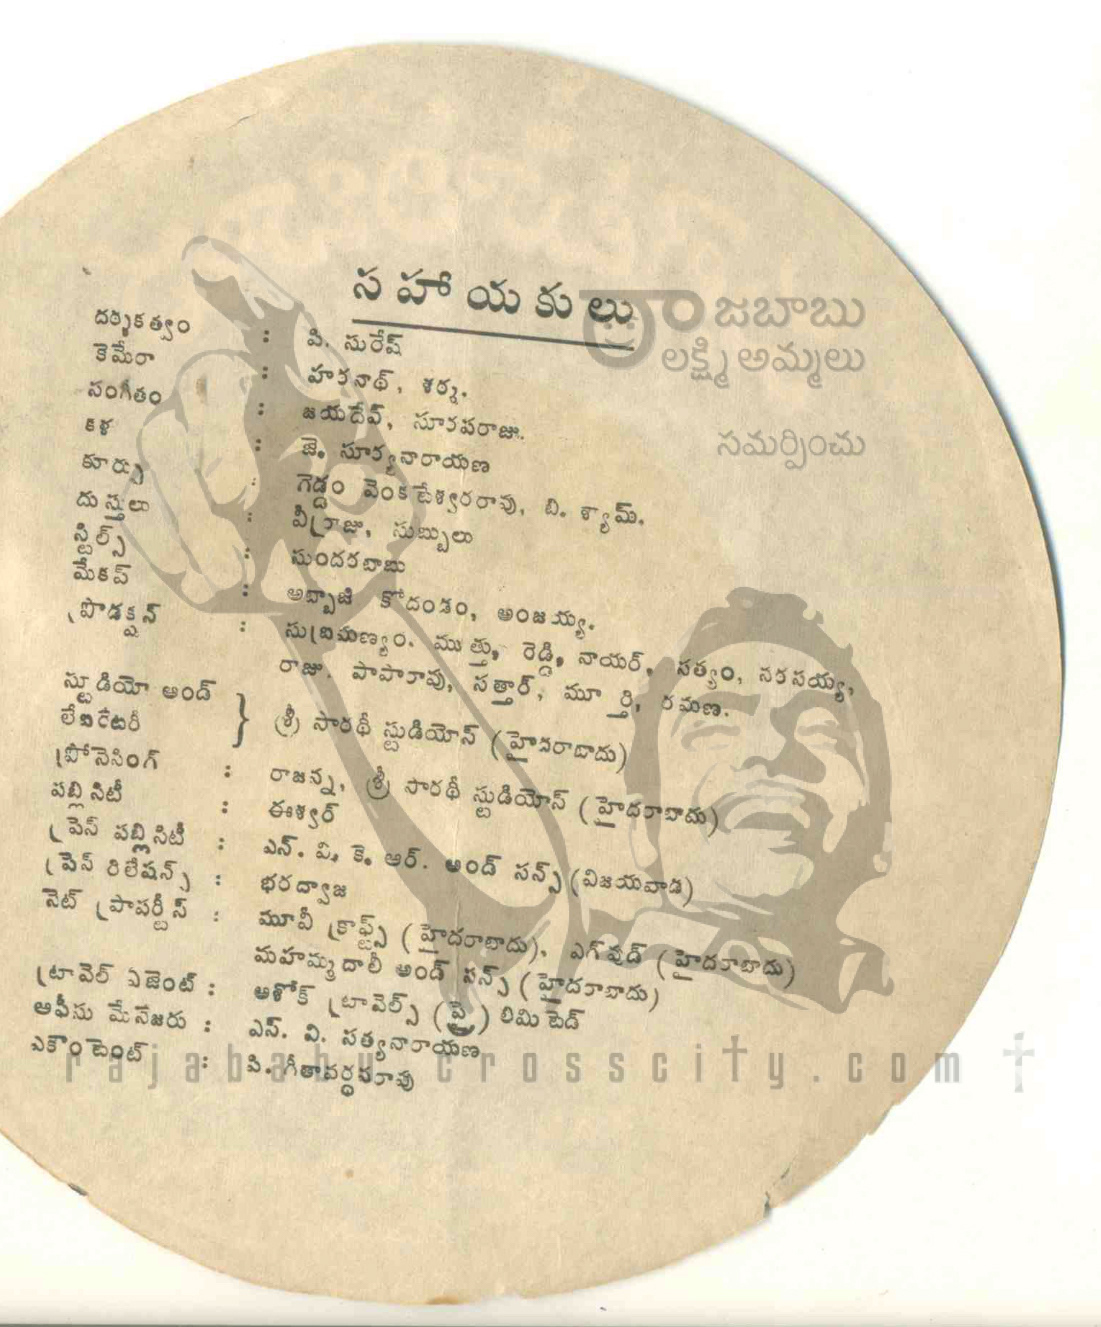 సహాయకులు
దర్శకత్వం : పి. సురేష్
కెమేరా : హరనాథ్, శర్మ.
సంగీతం : జయదేవ్, సూరపరాజు.
కళ : జె. సూర్యనారాయణ
కూర్పు : గెడ్డం వెంకటేశ్వరరావు, బి. శ్యామ్.
దుస్తులు : వీర్రాజు, సుబ్బులు
స్టిల్స్ : సుందరబాబు
మేకప్ : అబ్బాజి కోదండం, అంజయ్య.
ప్రొడక్షన్ : సుబ్రమణ్యం. ముత్తు, రెడ్డి, నాయర్, సత్యం, నరసయ్య,
రాజు. పాపారావు, సత్తార్, మూర్తి, రమణ.
స్టూడియో అండ్
లేబరేటరీ } శ్రీ సారథీ స్టుడియోస్ (హైదరాబాదు)
ప్రోసెసింగ్ : రాజన్న, శ్రీ సారథీ స్టుడియోస్ (హైదరాబాదు)
పబ్లిసిటీ : ఈశ్వర్
ప్రెస్ పబ్లిసిటీ : ఎన్. వి. కె. ఆర్. అండ్ సన్స్ (విజయవాడ)
ప్రెస్ రిలేషన్స్ : భరద్వాజ
సెట్ ప్రాపర్టీస్ : మూవీ క్రాఫ్ట్స్ (హైదరాబాదు), ఎగ్‌వుడ్ (హైదరాబాదు)
మహమ్మదాలీ అండ్ సన్స్ (హైదరాబాదు)
ట్రావెల్ ఏజెంట్ : అశోక్ ట్రావెల్స్ (ప్రై) లిమిటెడ్
ఆఫీసు మేనేజరు : ఎస్. వి. సత్యనారాయణ
ఎకౌంటెంట్ : పి. గీతావర్ధనరావు
రాజబాబు
లక్ష్మి అమ్మలు
సమర్పించు
rajababu.crosscity.com